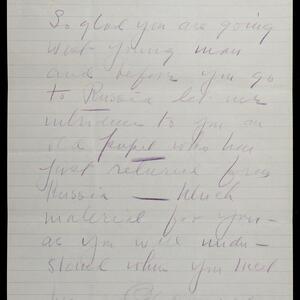 So glad you are going
West young man
and before you go
to Russia let me
introduce to you an
old pupil who has
just returned from
Russia — Much
material for you —
as you will under-
stand when you meet